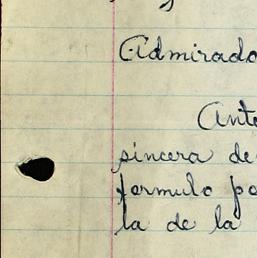 Admirado
Ante
sincera de
formulo po
la de la